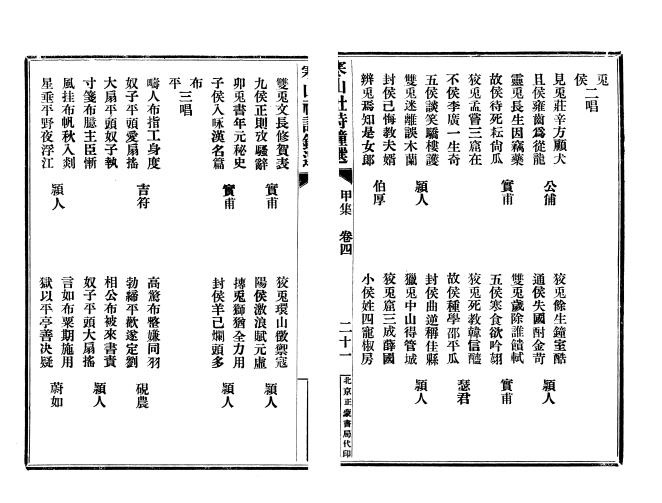 兎
侯 二唱
見兎莊辛方顧犬 狡兎餘生鐘室酷
且侯雍齒爲從龍 公俌 通侯失國酎金苛 潁人
靈兎長生因竊藥 雙兎歲除誰饋軾
故侯待死耘尙瓜 實甫 五侯寒食欲吟翃 實甫
狡兎孟嘗三窟在 狡兎死教韓信醢
不侯李廣一生奇 故侯種學邵平瓜 瑟君
五侯談笑驕樓護 封侯曲逆稱佳縣
雙兎迷離誤木蘭 潁人 獵兎中山得管城 潁人
封侯已悔教夫婿 狡兎窟三成薛國
辨兎焉知是女郎 伯厚 小侯姓四寵椒房
寒山社詩鐘選 甲集 卷四 二十一 北京正蒙書局代印
雙兎文長修賀表 狡兎環山儆禦寇
九侯正則攷騷辭 實甫 陽侯激浪賦元虛 潁人
卯兎書年元秘史 摶兎獅猶全力用
子侯入咏漢名篇 實甫 封侯羊已爛頭多
布
平 三唱
疇人布指工身度 高鶩布整嫌同羽
奴子平頭愛扇搖 吉符 勃締平歡遂定劉 硯農
大扇平頭奴子執 相公布被來書責
寸箋布臆主臣慚 奴子平頭大扇搖 潁人
風挂布帆秋入剡 言如布粟期施用
星垂平野夜浮江 潁人 獄以平亭善決疑 蔚如